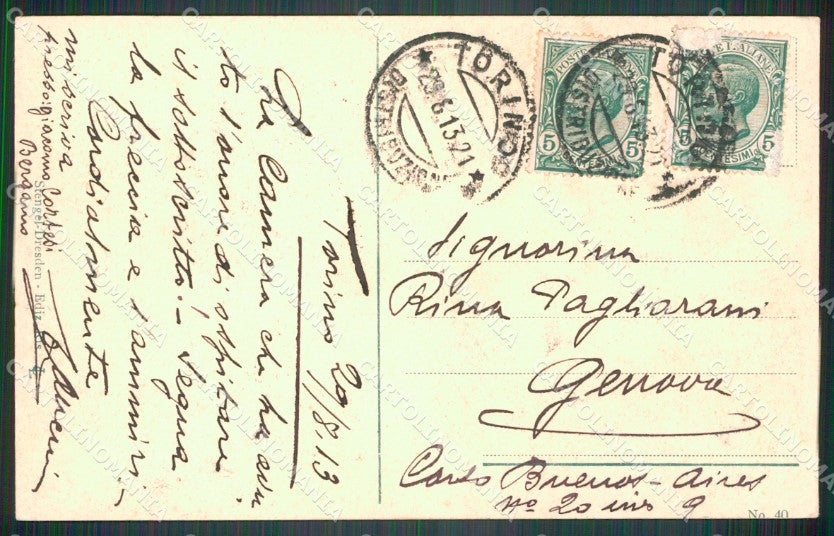 Torino 29/8.13
La Camera che ha avu
to l'onore di ospitare
il sottoscritto! - Segua
la freccia e l'ammiri -
Cordialmente
mi scriva
presso: Giacomo
Bergamo
Stengel-Dresden - Ediz
TORINO
29.8.13.21
TORINO
POSTE
5
E ITALIANE
5
CENTESIMI
5
Signorina
Rina Pagliarani
Genova
Corso Buenos-Aires
no 20 int 9
No. 40
CARTOLINOMANIA